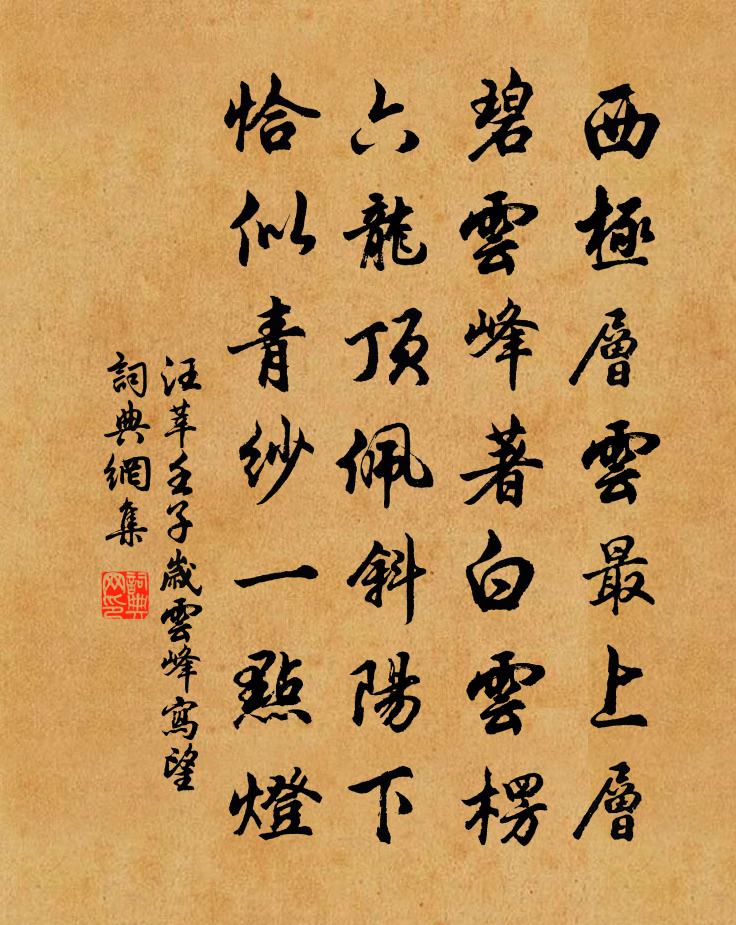 西極層雲最上層
碧雲峰著白雲楞
六龍頂佩斜陽下
恰似青紗一點燈
汪莘壬子歲雲峰寫望
詞典網集
詞典网印